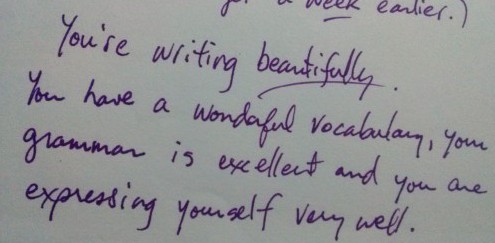 a week earlier.)
You're writing beautifully.
You have a wonderful vocabulary, your
grammar is excellent and you are
expressing yourself very well.